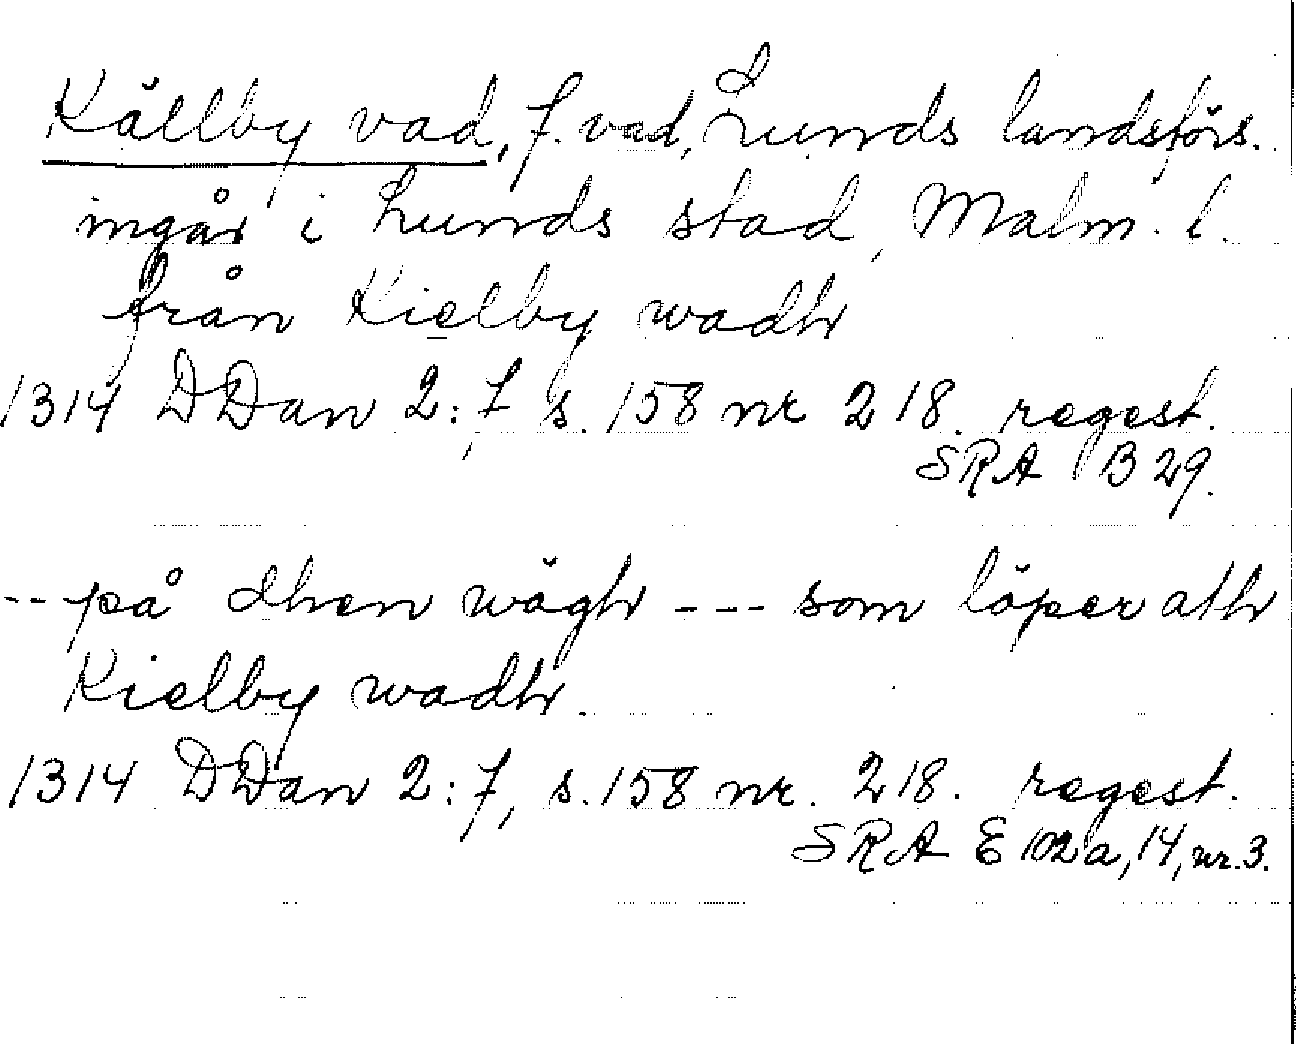 Källby vad, f. vad, Lunds landsförs.
ingår i Lunds stad, Malm. l.
från Kielby wadhr
1314 DDan 2:7, s. 158 nr 218. regest.
SRA B 29.
-- på dhen wäghr --- som löper athr
Kielby wadhr.
1314 DDan 2:7, s. 158 nr. 218. regest.
SRA E 102a, 14, nr. 3.